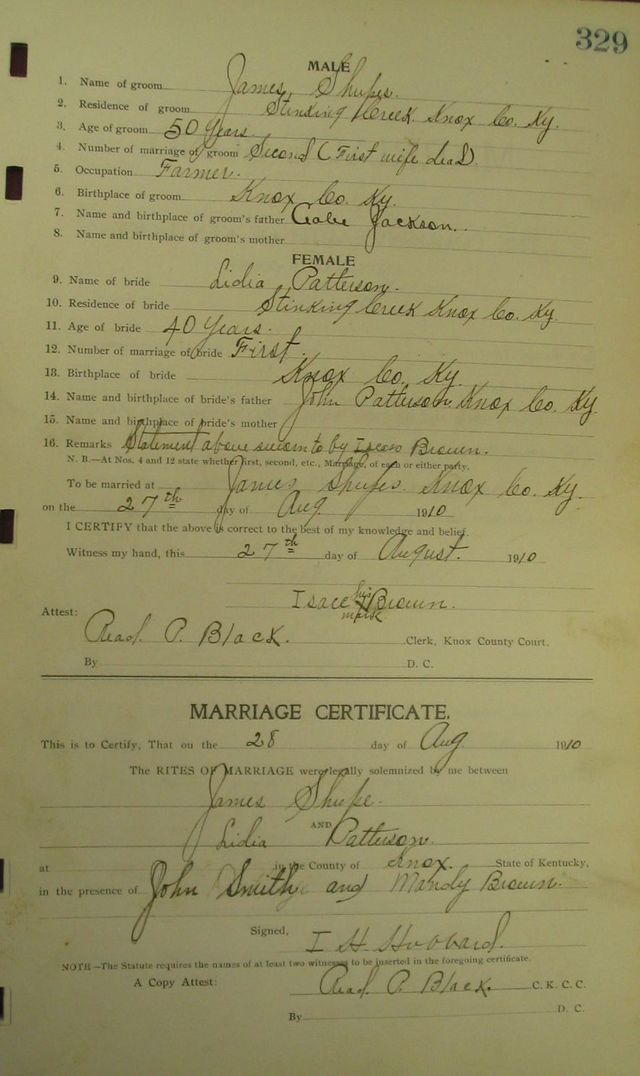 329
MALE
1. Name of groom James Shupes.
2. Residence of groom Stinking Creek Knox Co. Ky.
3. Age of groom 50 Years.
4. Number of marriage of groom Second (First wife dead)
5. Occupation Farmer.
6. Birthplace of groom Knox Co. Ky.
7. Name and birthplace of groom's father Jackson.
8. Name and birthplace of groom's mother
FEMALE
9. Name of bride Lidia Patterson.
10. Residence of bride Stinking Creek Knox Co. Ky.
11. Age of bride 40 Years.
12. Number of marriage of bride First.
13. Birthplace of bride Knox Co. Ky.
14. Name and birthplace of bride's father John Patterson Knox Co. Ky
15. Name and birthplace of bride's mother
16. Remarks Statement above sworn to by Brown.
N. B.—At Nos. 4 and 12 state whether first, second, etc., Marriage, of each or either party.
To be married at James Shupes Knox Co. Ky.
on the 27th day of Aug 1910
I CERTIFY that the above is correct to the best of my knowledge and belief.
Witness my hand, this 27th day of August. 1910
his
Isacc X Brown.
mark
Attest:
Read P. Black. Clerk, Knox County Court.
By D. C.
MARRIAGE CERTIFICATE.
This is to Certify, That on the 28 day of Aug 1910
The RITES OF MARRIAGE were legally solemnized by me between
James Shupe.
AND
Lidia Patterson.
at in the County of Knox. State of Kentucky,
in the presence of John Smith and Mandy Brown.
Signed, I H Hubbard.
NOTE—The Statute requires the names of at least two witnesses to be inserted in the foregoing certificate.
A Copy Attest: Read P. Black. C. K. C. C.
By D. C.